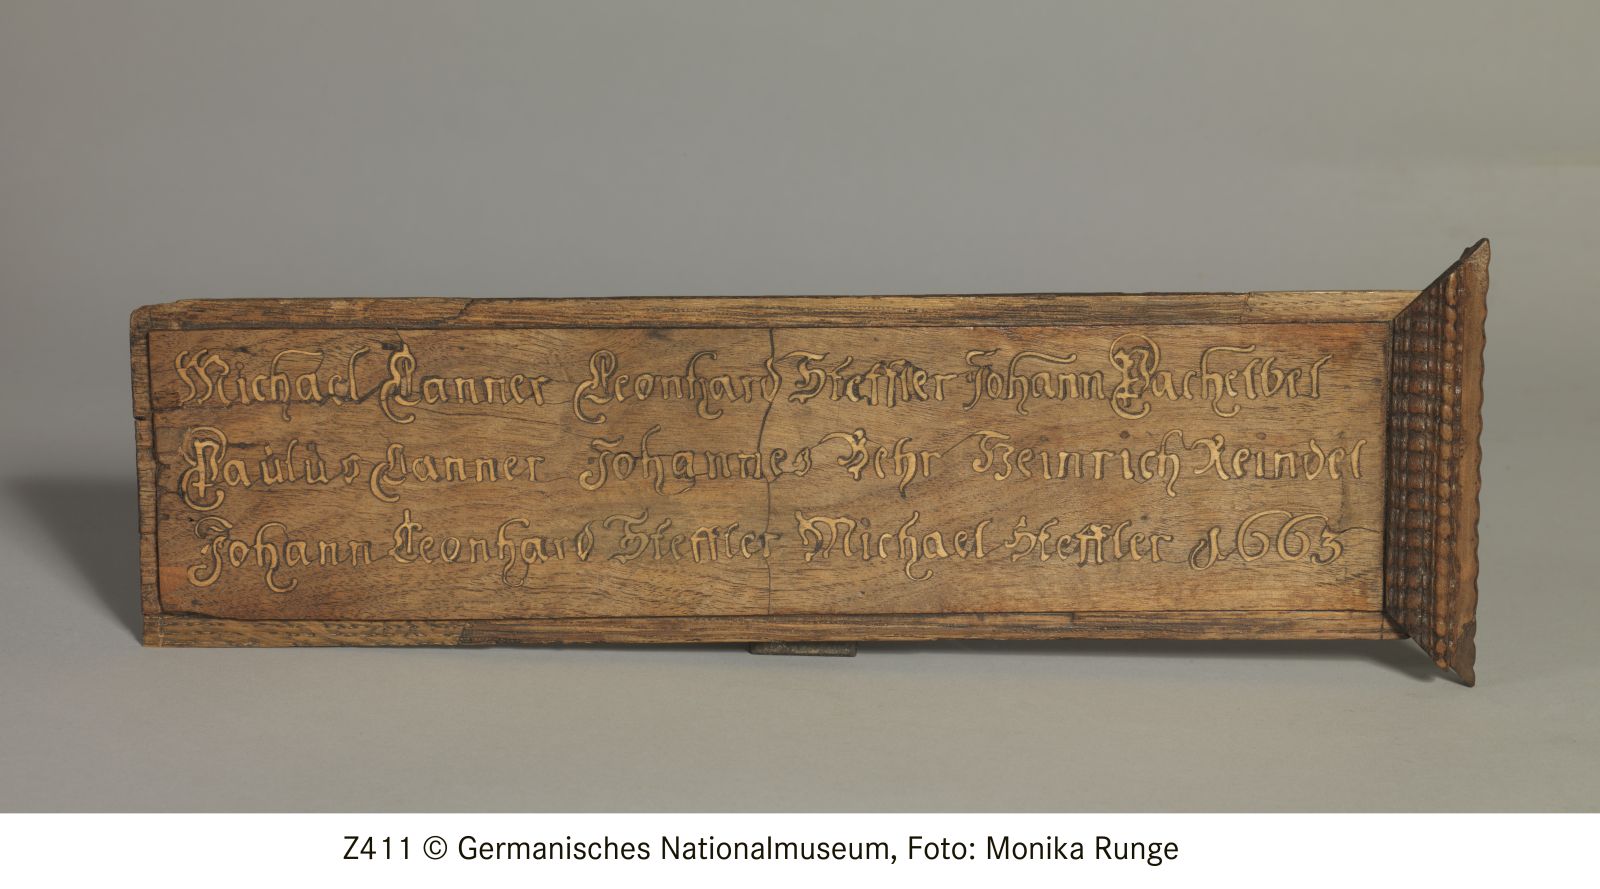 Michael Lanner Leonhard Steffler Johann Pachelbel
Paulus Lanner Johannes Behr Heinrich Reindel
Johann Leonhard Steffler Michael Steffler 1663
Z411 © Germanisches Nationalmuseum, Foto: Monika Runge